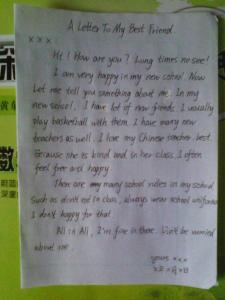 A Letter To My Best Friend
x x x :
Hi ! How are you ? Lung times no see!
I am very happy in my new school. Now
Let me tell you something about me. In my
new school. I have lot of new friends. I usually
play basketball with them. I have many new
teachers as well. I love my Chinese teacher best.
Because she is kind and in her class, I often
feel free and happy.
There are many school rules in my school
Such as don't eat in class, always wear school uniforms
I don't happy for that.
All in All, I'm fine in there. Don't be worried
about me.
yours xxx
深
数